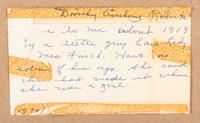 Dorothy Amburg Roberts
is to me about 1913
by a little grey hair lady
Mrs Finch. Have no
idea of his age. She said
she had made it when
she was a girl.
(1970)